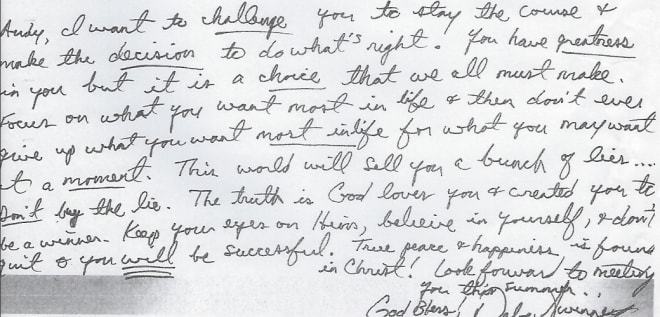 Andy, I want to challenge you to stay the course &
make the decision to do what's right. You have greatness
in you but it is a choice that we all must make.
Focus on what you want most in life & then don't ever
give up what you want most in life for what you may want
at a moment. This world will sell you a bunch of lies....
Don't buy the lie. The truth is God loves you & created you to
be a winner. Keep your eyes on Him, believe in yourself, & don't
quit & you will be successful. True peace & happiness is found
in Christ! Look forward to meeting
you this summer...
God Bless! Dabo Swinney